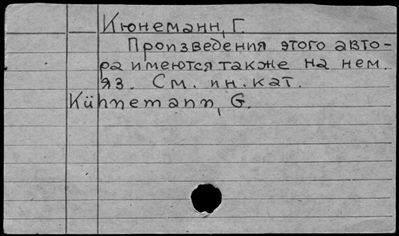 Кюнеманн, Г.
Произведения этого авто-
ра имеются также на нем.
яз. См. ин. кат.
Kühnemann, G.